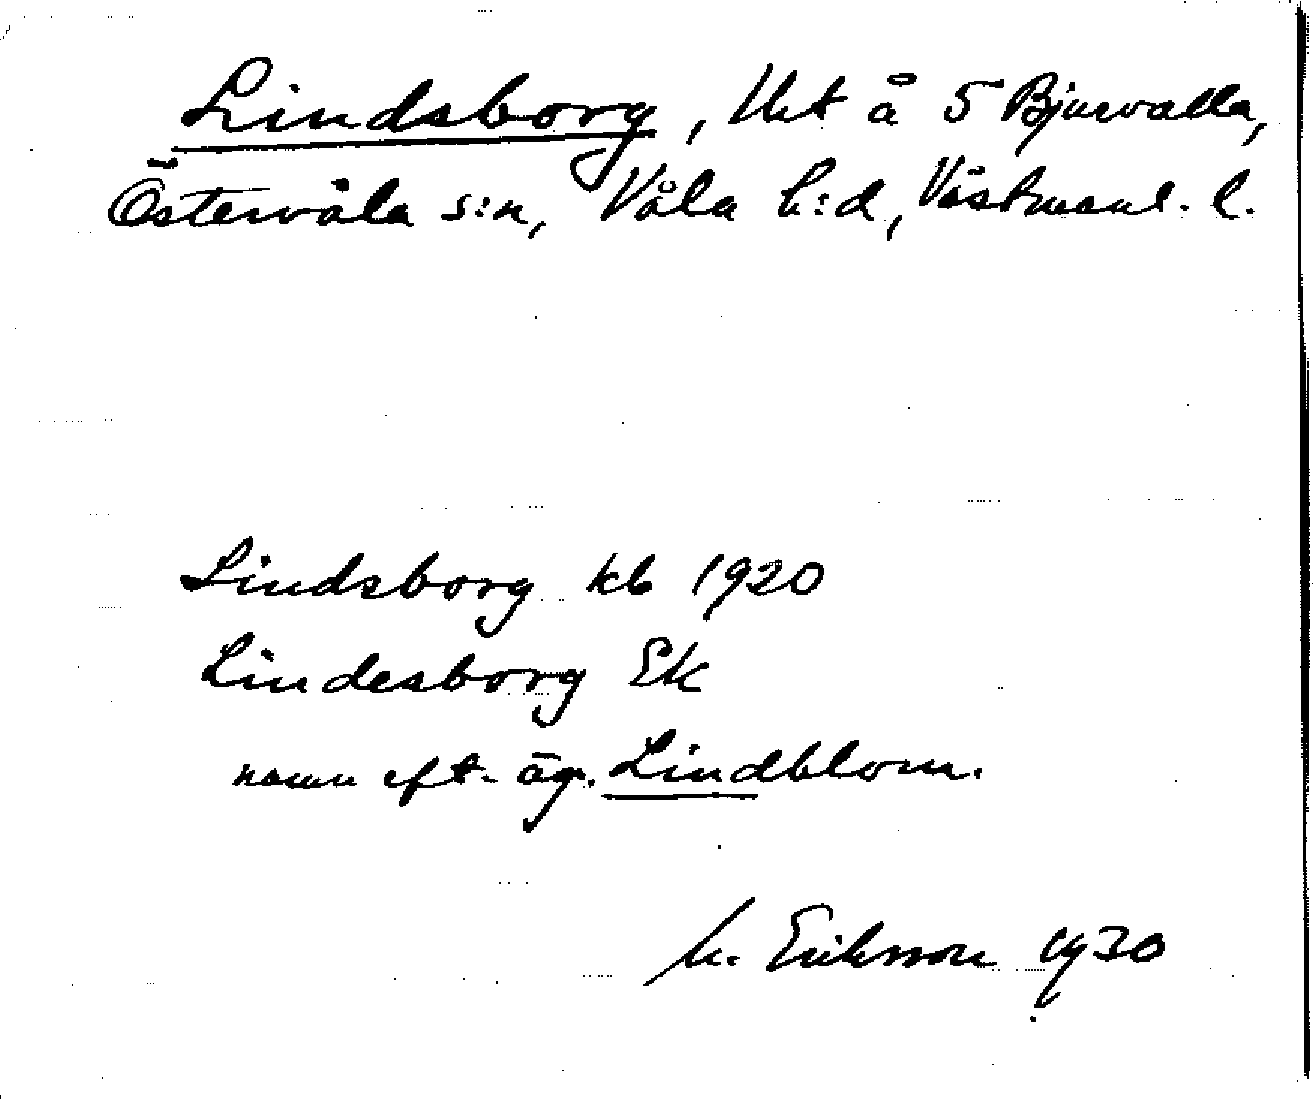 Lindsborg, Uit å 5 Bjurvalla,
Östervåla s:n, Våla h:d, Västmanl. l.
Lindsborg kb 1920
Lindesborg Ek
namn eft. äg. Lindblom.
M. Eriksson 1930